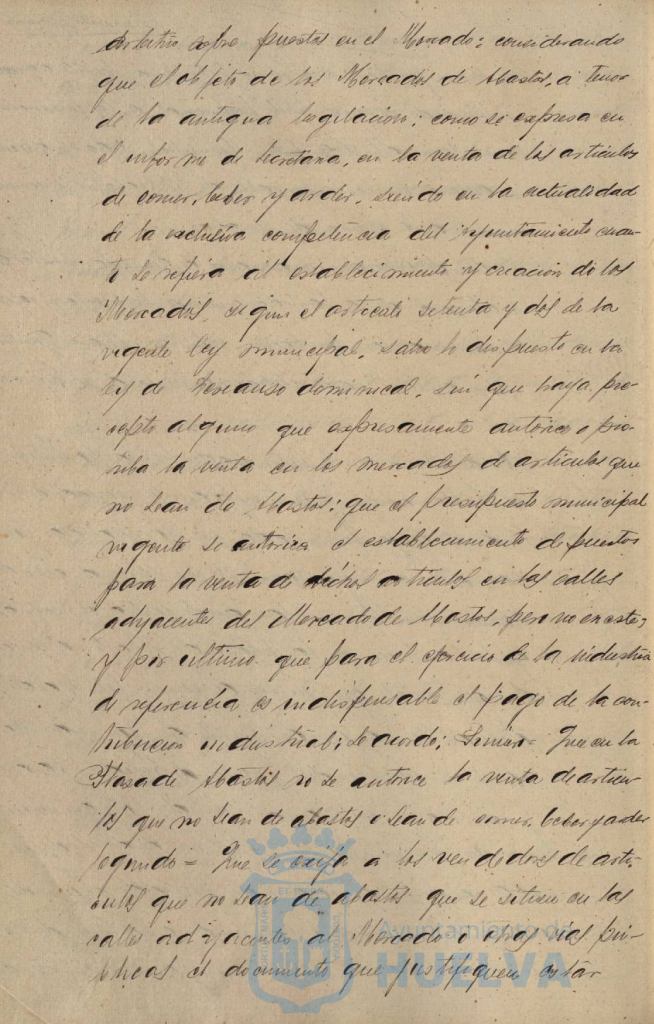 arbitrio sobre puestos en el Mercado; considerando
que el objeto de los Mercados de Abastos, a tenor
de la antigua legislacion; como se expresa en
el informe de Secretaria, en la venta de los articulos
de comer, beber y arder, siendo en la actualidad
de la exclusiva competencia del Ayuntamiento cuan-
to se refiera al establecimiento y creacion de los
Mercados, segun el articulo setenta y dos de la
vigente ley municipal, salvo lo dispuesto en la
ley de Descanso dominical, sin que haya pre-
cepto alguno que expresamente autorice o pro-
hiba la venta en los mercados de articulos que
no sean de Abastos; que el presupuesto municipal
vigente se autoriza el establecimiento de puestos
para la venta de dichos articulos en las calles
adyacentes del Mercado de Abastos, pero no en este;
y por ultimo que para el ejercicio de la industria
de referencia es indispensable el pago de la con-
tribucion industrial; se acordo; Que en la
Plaza de Abastos no se autorice la venta de articu-
los que no sean de abastos o sean de comer, beber y arder
segundo = Que se exija a los vendedores de arti-
culos que no sean de abastos que se situen en las
calles adyacentes al Mercado o otras vias pu-
blicas el documento que justifiquen estar
Ayuntamiento de
HUELVA